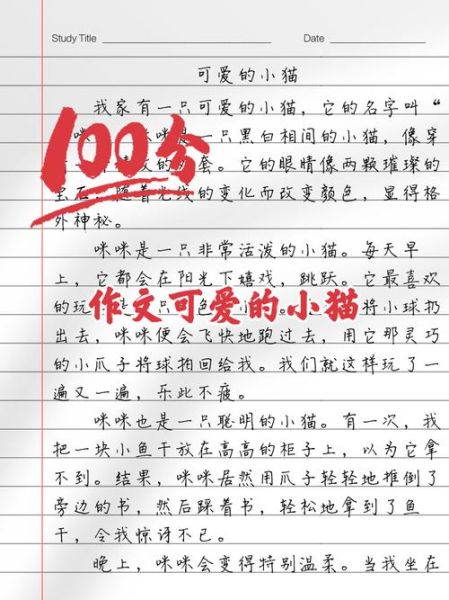 Study Title Date
可爱的小猫
我家有一只可爱的小猫，它的名字叫“
咪是一只黑白相间的小猫，像穿
100分
套。它的眼睛像两颗璀璨的
宝石，随着光线的变化而改变颜色，显得格
外神秘。
咪咪是一只非常活泼的小猫。每天早
上，它都会在阳光下嬉戏，跳跃。它最喜欢
的玩 将小球扔
作文可爱的小猫
出去，咪咪便会飞快地跑过去，用它那灵巧
的小爪子将球拍回给我。我们就这样玩了一
遍又一遍，乐此不疲。
咪咪也是一只聪明的小猫。有一次，我
把一块小鱼干放在高高的柜子上，以为它拿
不到。结果，咪咪居然用爪子轻轻地推倒了
旁边的书，然后踩着书，轻松地拿到了鱼
干，令我惊讶不已。
晚上，咪咪会变得特别温柔。当我坐在